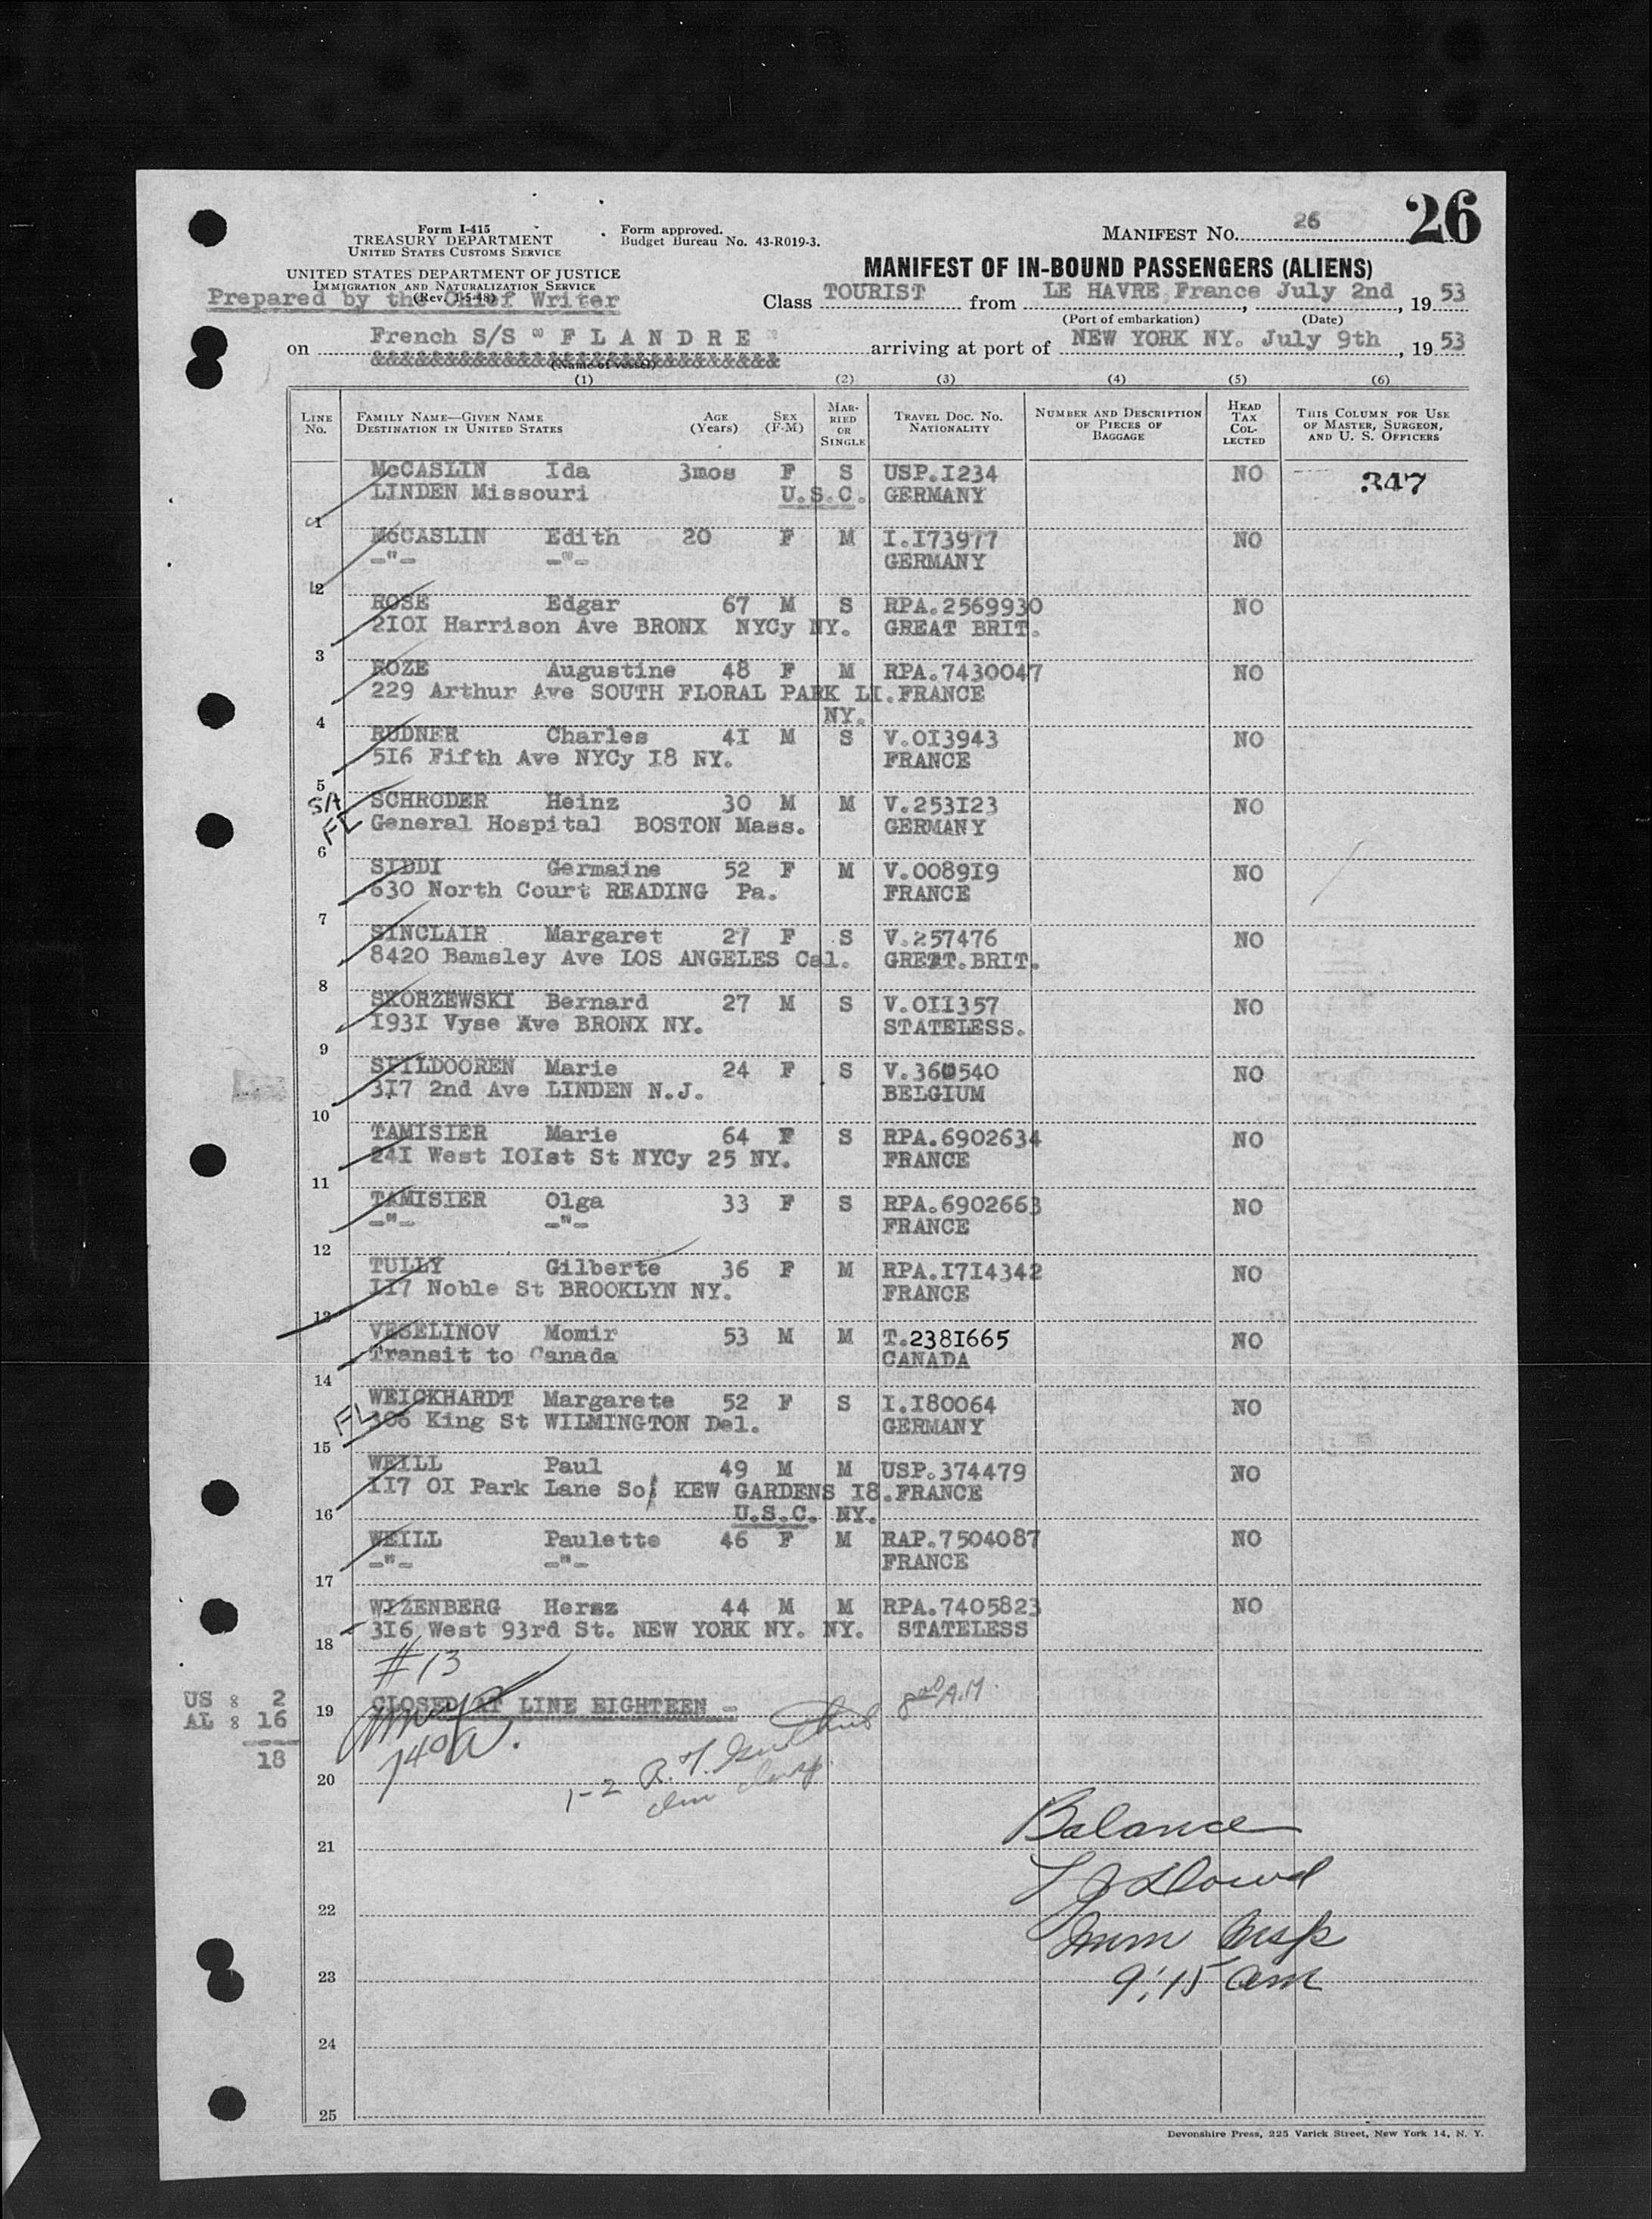 26
Form I-415
TREASURY DEPARTMENT
UNITED STATES CUSTOMS SERVICE
Form approved.
Budget Bureau No. 43-R019-3.
MANIFEST NO. 26
UNITED STATES DEPARTMENT OF JUSTICE
IMMIGRATION AND NATURALIZATION SERVICE
(Rev. 1-5-48)
Prepared by the Chief Writer
MANIFEST OF IN-BOUND PASSENGERS (ALIENS)
Class TOURIST from LE HAVRE France July 2nd, 1953
(Port of embarkation) (Date)
on French S/S " F L A N D R E " arriving at port of NEW YORK NY. July 9th, 1953
&&&&&&&&&&&&&&&&&&&&&&&&&&&&
(Name of vessel)
(1) (2) (3) (4) (5) (6)
LINE No. FAMILY NAME—GIVEN NAME DESTINATION IN UNITED STATES AGE (Years) SEX (F-M) MARRIED OR SINGLE TRAVEL DOC. NO. NATIONALITY NUMBER AND DESCRIPTION OF PIECES OF BAGGAGE HEAD TAX COLLECTED THIS COLUMN FOR USE OF MASTER, SURGEON, AND U. S. OFFICERS
McCASLIN Ida 3mos F S USP.I234 NO 347
LINDEN Missouri U.S.C. GERMANY
1
McCASLIN Edith 20 F M I.I73977 NO
-"- -"- GERMANY
2
ROSE Edgar 67 M S RPA.2569930 NO
2I0I Harrison Ave BRONX NYCy NY. GREAT BRIT.
3
ROZE Augustine 48 F M RPA.7430047 NO
229 Arthur Ave SOUTH FLORAL PARK LI. FRANCE
NY.
4
RUDNER Charles 4I M S V.0I3943 NO
5I6 Fifth Ave NYCy I8 NY. FRANCE
5
S/A SCHRODER Heinz 30 M M V.253I23 NO
FL General Hospital BOSTON Mass. GERMANY
6
SIDDI Germaine 52 F M V.0089I9 NO
630 North Court READING Pa. FRANCE
7
SINCLAIR Margaret 27 F S V.257476 NO
8420 Bamsley Ave LOS ANGELES Cal. GREAT.BRIT.
8
SKORZEWSKI Bernard 27 M S V.0II357 NO
I93I Vyse Ave BRONX NY. STATELESS.
9
SPILDOOREN Marie 24 F S V.360540 NO
3I7 2nd Ave LINDEN N.J. BELGIUM
10
TAMISIER Marie 64 F S RPA.6902634 NO
24I West I0Ist St NYCy 25 NY. FRANCE
11
TAMISIER Olga 33 F S RPA.6902663 NO
-"- -"- FRANCE
12
TULLY Gilberte 36 F M RPA.I7I4342 NO
II7 Noble St BROOKLYN NY. FRANCE
13
VESELINOV Momir 53 M M T.238I665 NO
Transit to Canada CANADA
14
WEICKHARDT Margarete 52 F S I.I80064 NO
FL 306 King St WILMINGTON Del. GERMANY
15
WEILL Paul 49 M M USP.374479 NO
II7 0I Park Lane So, KEW GARDENS I8. FRANCE
U.S.C. NY.
16
WEILL Paulette 46 F M RAP.7504087 NO
-"- -"- FRANCE
17
WIZENBERG Hersz 44 M M RPA.7405823 NO
3I6 West 93rd St. NEW YORK NY. NY. STATELESS
18
#13
US : 2
AL : 16
18
19 CLOSED AT LINE EIGHTEEN -
8 00 A.M.
740 a.
1-2 R. F.
20
Balance
21
Dowd
22
Imm Insp
23
9:15 am
24
25
Devonshire Press, 225 Varick Street, New York 14, N. Y.